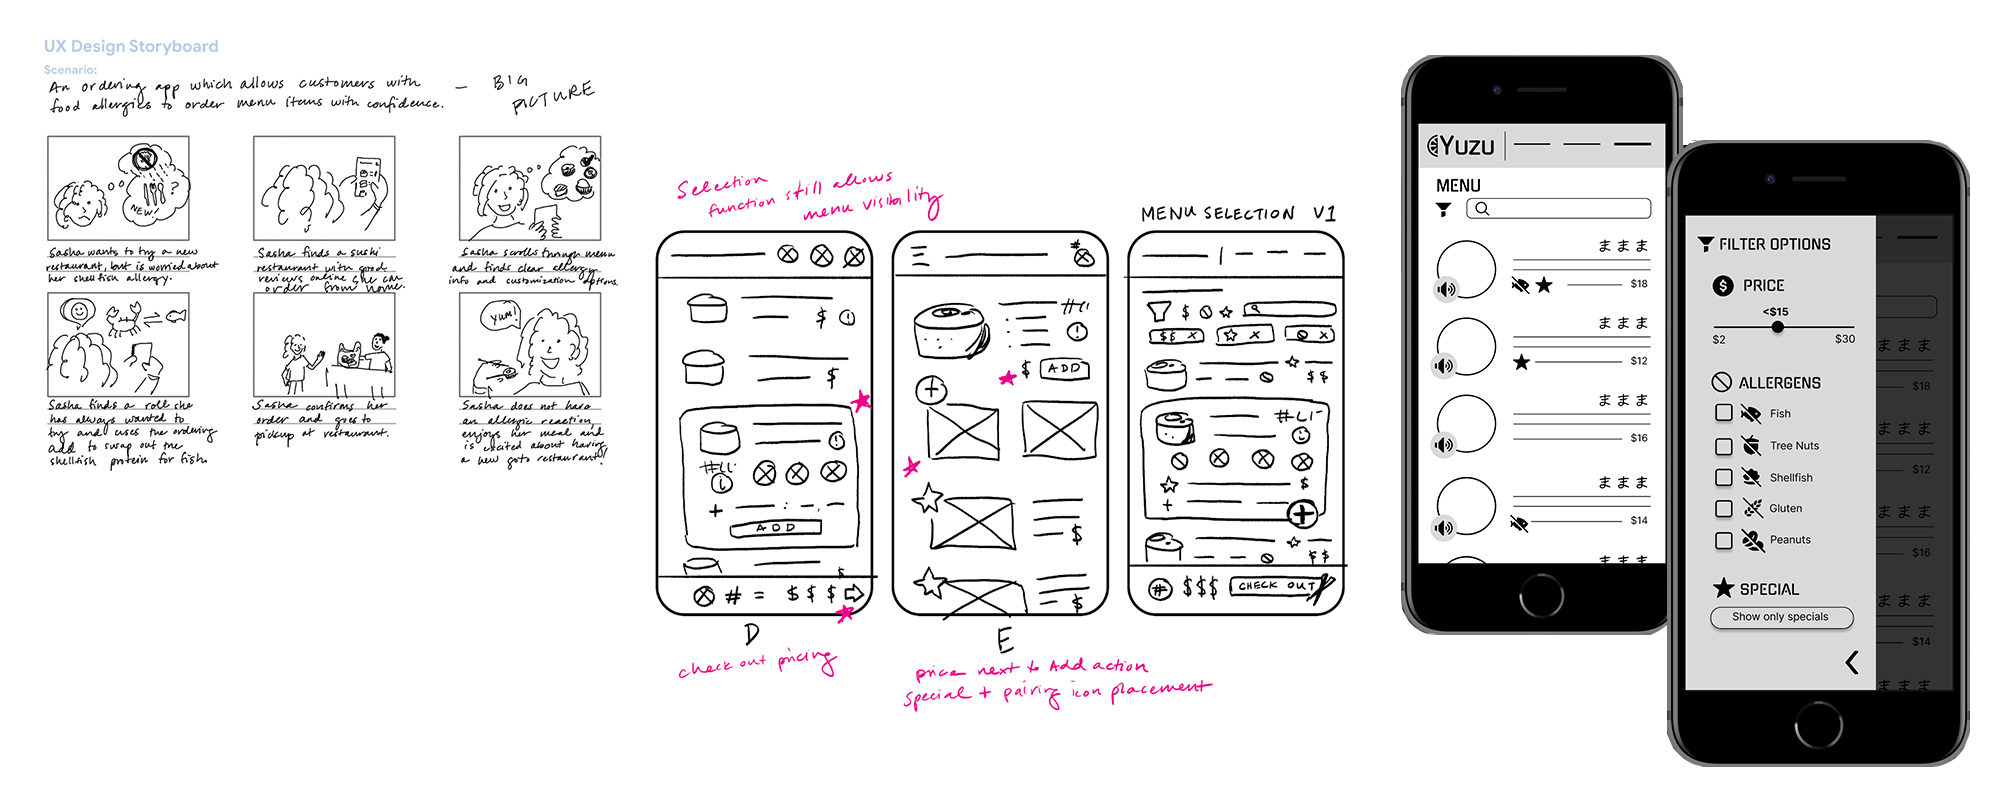 UX Design Storyboard
Scenario:
An ordering app which allows customers with
food allergies to order menu items with confidence.
— BIG
PICTURE
NEW!
?
Sasha wants to try a new
restaurant, but is worried about
her shellfish allergy.
Sasha finds a sushi
restaurant with good
reviews online she can
order from home.
Sasha scrolls through menu
and finds clear allergy
info and customization options.
Sasha finds a roll she
has always wanted to
try and uses the ordering
add to swap out the
shellfish protein for fish.
Sasha confirms her
order and goes to
pickup at restaurant.
YUM!
Sasha does not have
an allergic reaction,
enjoys her meal and
is excited about having
a new goto restaurant!
Selection
function still allows
menu visibility
$
$
ADD
$
# = $ $ $
D
check out pricing
#
$ ADD
$
$
E
price next to Add action
special + pairing icon placement
MENU SELECTION V1
$
$$ X
X
X
$$
$
+
$$
# $$$ CHECK OUT
YUZU
MENU
ままま
$18
ままま
$12
ままま
$16
ままま
$14
ままま
FILTER OPTIONS
$ PRICE
<$15
$2 $30
ALLERGENS
Fish
Tree Nuts
Shellfish
Gluten
Peanuts
SPECIAL
Show only specials
ままま
$18
ままま
$12
ままま
$16
ままま
$14
ままま